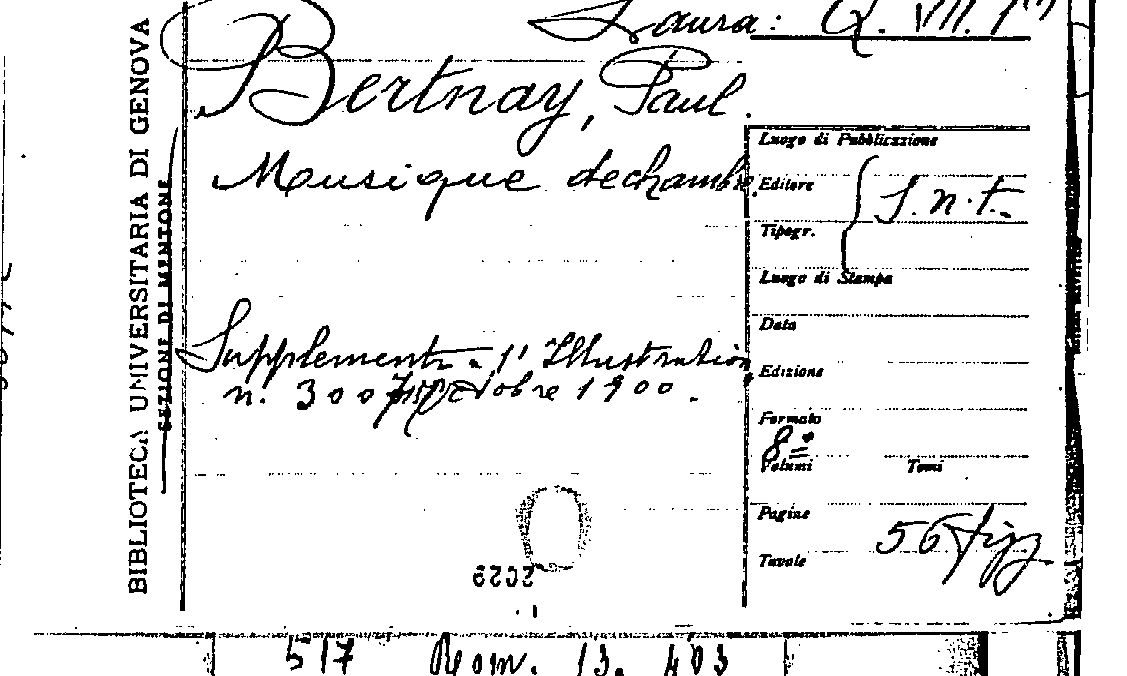 Laura: Q. VII. 1
Bertnay, Paul.
Musique de chambre.
Supplement à l'Illustration
n. 3007 octobre 1900.
BIBLIOTECA UNIVERSITARIA DI GENOVA
SEZIONE DI MENTONE
Luogo di Pubblicazione
Editore
S. n. t.
Tipogr.
Luogo di Stampa
Data
Edizione
Formato
8º
Volumi Tomi
Pagine
56 figg
Tavole
2029
517 Rom. 13. 403